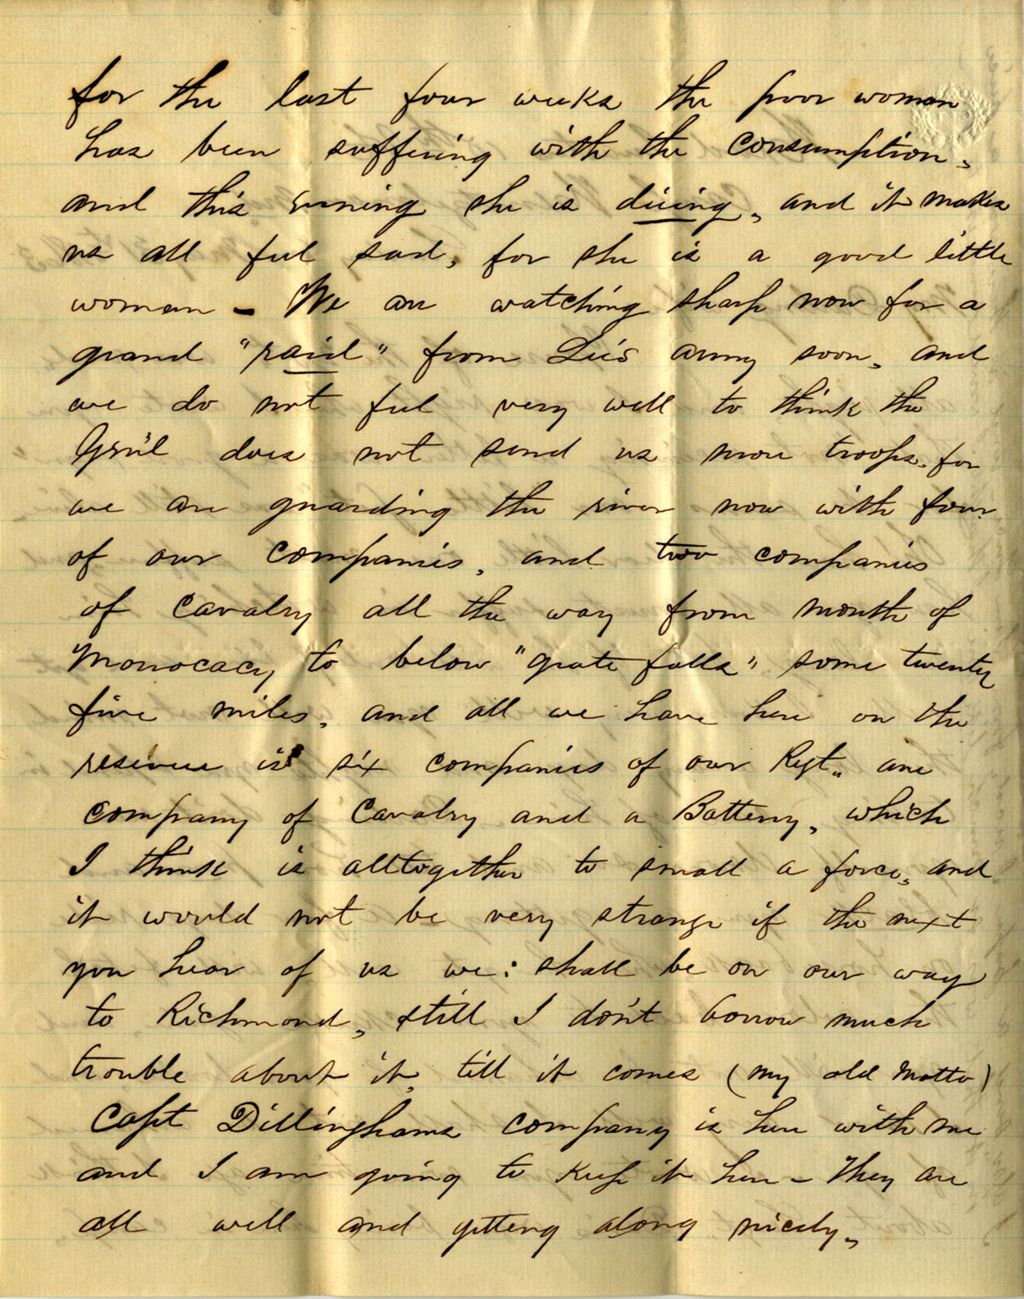 for the last four weeks the poor woman
has been suffering with the consumption,
and this evening she is dieing, and it makes
us all feel sad, for she is a good little
woman - We are watching sharp now for a
grand "raid" from Lee's army soon, and
we do not feel very well to think the
Gen'l does not send us more troops, for
we are guarding the river now with four
of our companies, and two companies
of Cavalry all the way from mouth of
Monocacy to below "grate falls" some twenty
five miles, and all we have here on the
reserve is six companies of our Regt., one
company of Cavalry and a Battery, which
I think is alltogether to small a force, and
it would not be very strange if the next
you hear of us we: shall be on our way
to Richmond, still I don't borrow much
trouble about it, till it comes (my old motto)
Capt Dillinghams company is here with me
and I am going to keep it here - They are
all well and getting along nicely,